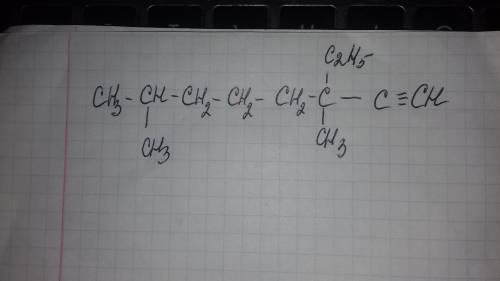 C₂H₅
CH₃-CH-CH₂-CH₂-CH₂-C-C≡CH
CH₃ CH₃